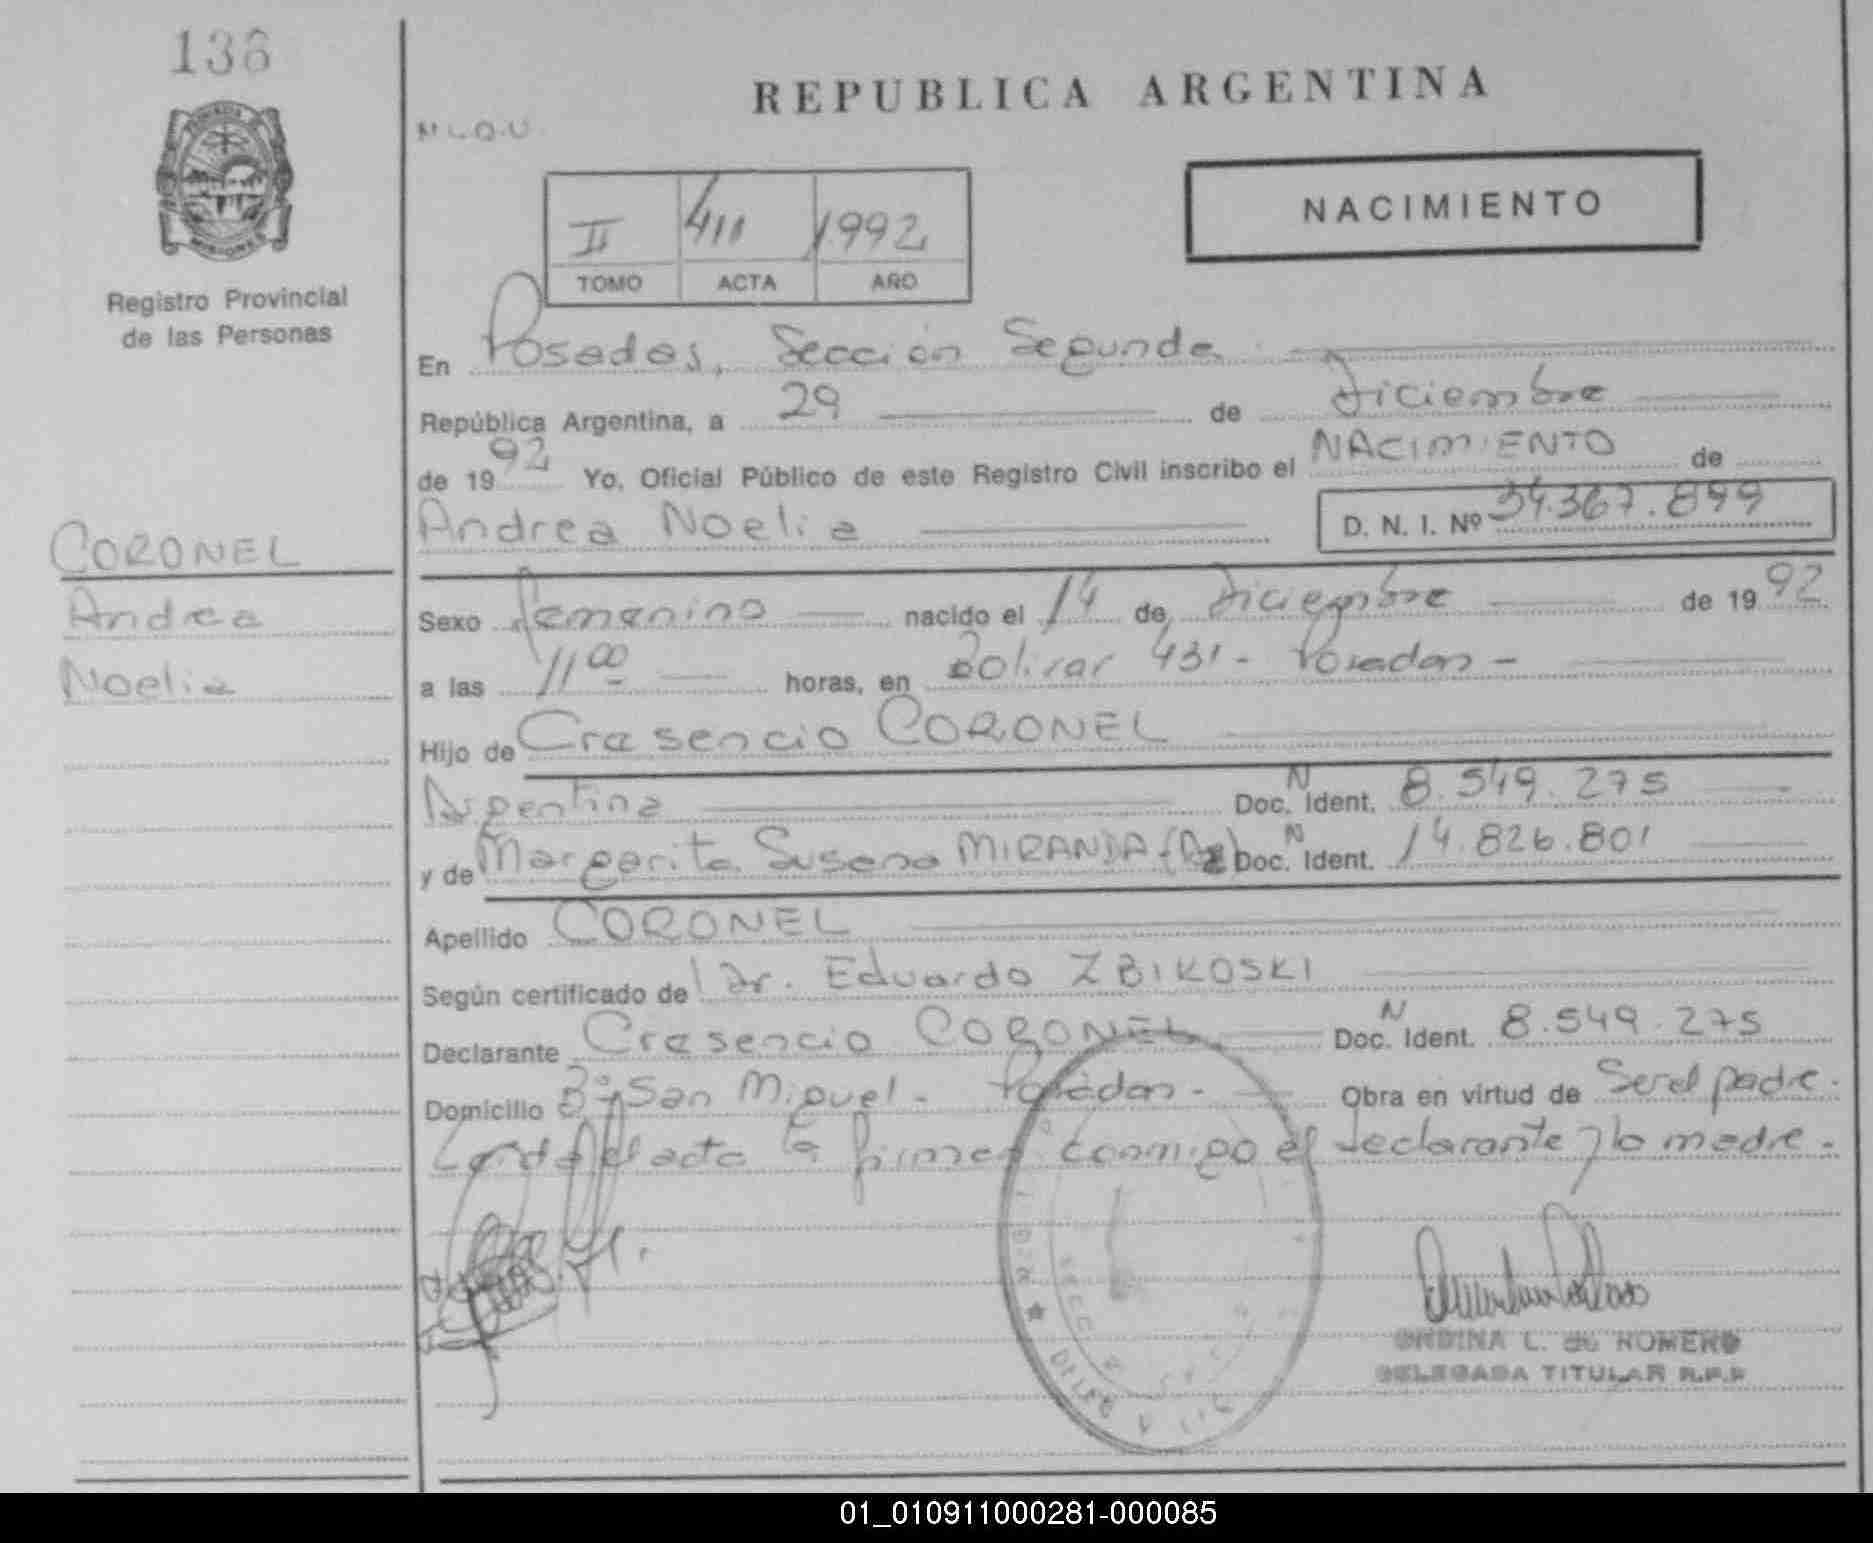 136
REPUBLICA ARGENTINA
NACIMIENTO
II 411 1992
TOMO ACTA AÑO
Registro Provincial
de las Personas
En Posadas, Sección Segunda
República Argentina, a 29 de diciembre
de 1992 Yo, Oficial Público de este Registro Civil inscribo el NACIMIENTO de
Andrea Noelia D. N. I. Nº 34.367.899
CORONEL
Andrea
Noelia
Sexo femenino nacido el 14 de diciembre de 1992
a las 11 00 horas, en Bolivar 431 - Posadas -
Hijo de Cresencio CORONEL
Argentina Doc. N Ident. 8.549.275
y de Margarita Susana MIRANDA Doc. N Ident. 14.826.801
Apellido CORONEL
Según certificado de Dr. Eduardo ZBIKOSKI
Declarante Cresencio CORONEL Doc. N Ident. 8.549.275
Domicilio Bº San Miguel - Posadas - Obra en virtud de Ser el padre.
Leída el acta la firman conmigo el declarante y la madre.
ONDINA L. de ROMERO
DELEGADA TITULAR R.P.P
01_010911000281-000085